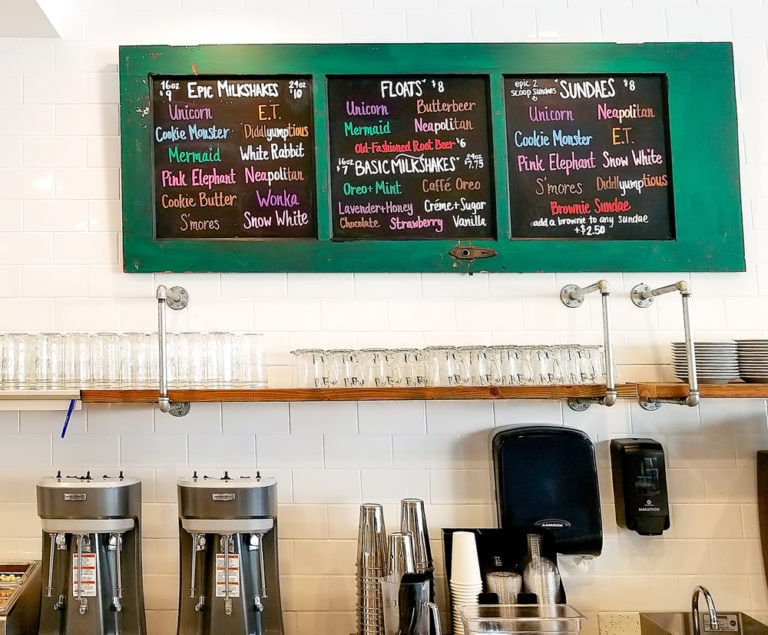 16oz $9 EPIC MILKSHAKES 24oz 10
Unicorn E.T.
Cookie Monster Diddlyumptious
Mermaid White Rabbit
Pink Elephant Neapolitan
Cookie Butter Wonka
S'mores Snow White
FLOATS $8
Unicorn Butterbeer
Mermaid Neapolitan
Old-Fashioned Root Beer $6
16oz $7 BASIC MILKSHAKES 24oz $7.75
Oreo+Mint Caffé Oreo
Lavender+Honey Créme+Sugar
Chocolate Strawberry Vanilla
epic 2 scoop sundaes SUNDAES $8
Unicorn Neapolitan
Cookie Monster E.T.
Pink Elephant Snow White
S'mores Diddlyumptious
Brownie Sundae
add a brownie to any sundae
+$2.50
MARATHON